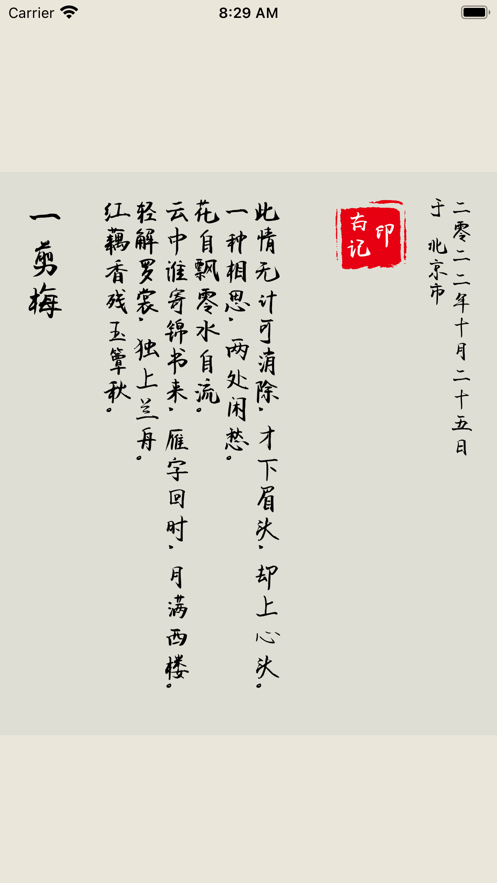 Carrier 8:29 AM
一剪梅
红藕香残玉簟秋。
轻解罗裳，独上兰舟。
云中谁寄锦书来，雁字回时，月满西楼。
花自飘零水自流。
一种相思，两处闲愁。
此情无计可消除，才下眉头，却上心头。
右记
印
二零二二年十月二十五日
于 北京市